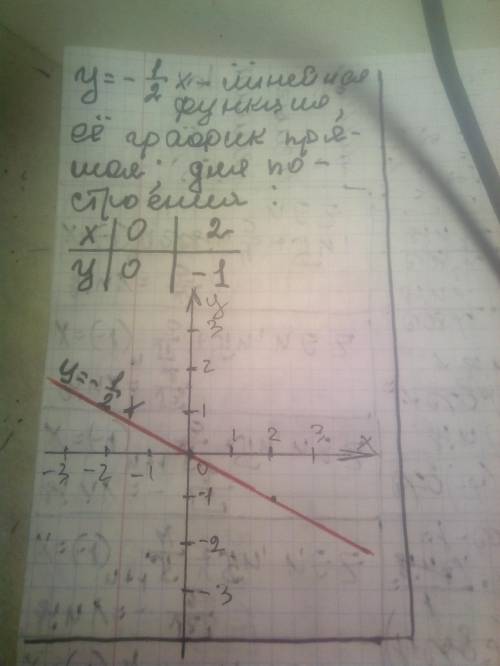 y = - 1/2 x - линейная
функция,
её график пря-
мая: для по-
строения:
x | 0 | 2
y | 0 | -1
y
3
2
y = - 1/2 x
1
1 2 3 x
-3 -2 -1 0
-1
-2
-3